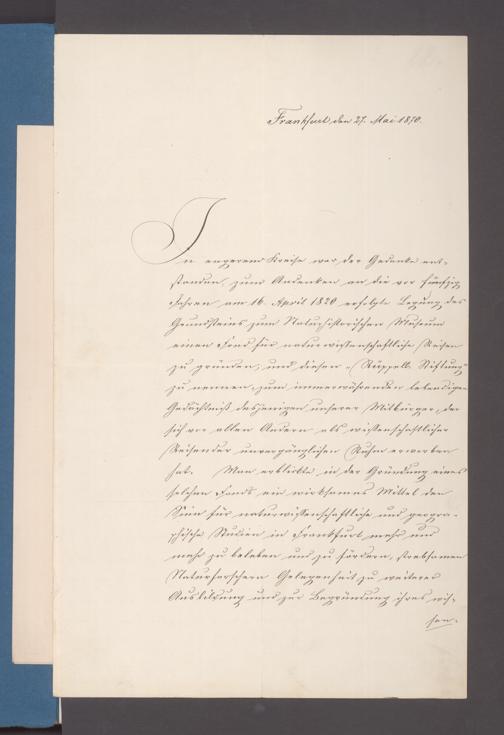 Frankfurt, den 27. Mai 1870.
In engerem Kreise war der Gedanke ent-
standen, zum Andenken an die vor fünfzig
Jahren am 16. April 1820 erfolgte Legung des
Grundsteins zum Naturhistorischen Museum
einen Fond für naturwissenschaftliche Reisen
zu gründen, und diesen „Rüppell Stiftung“
zu nennen, zum immerwährenden lebendigen
Gedächtniß desjenigen unserer Mitbürger, der
sich vor allen Andern als wissenschaftlicher
Reisender unvergänglichen Ruhm erworben
hat. Man erblickte in der Gründung eines
solchen Fonds ein wirksames Mittel den
Sinn für naturwissenschaftliche und geogra-
phische Studien in Frankfurt mehr und
mehr zu beleben und zu fördern, strebsamen
Naturforschern Gelegenheit zu weiterer
Ausbildung und zur Begründung ihres wis-
sen-